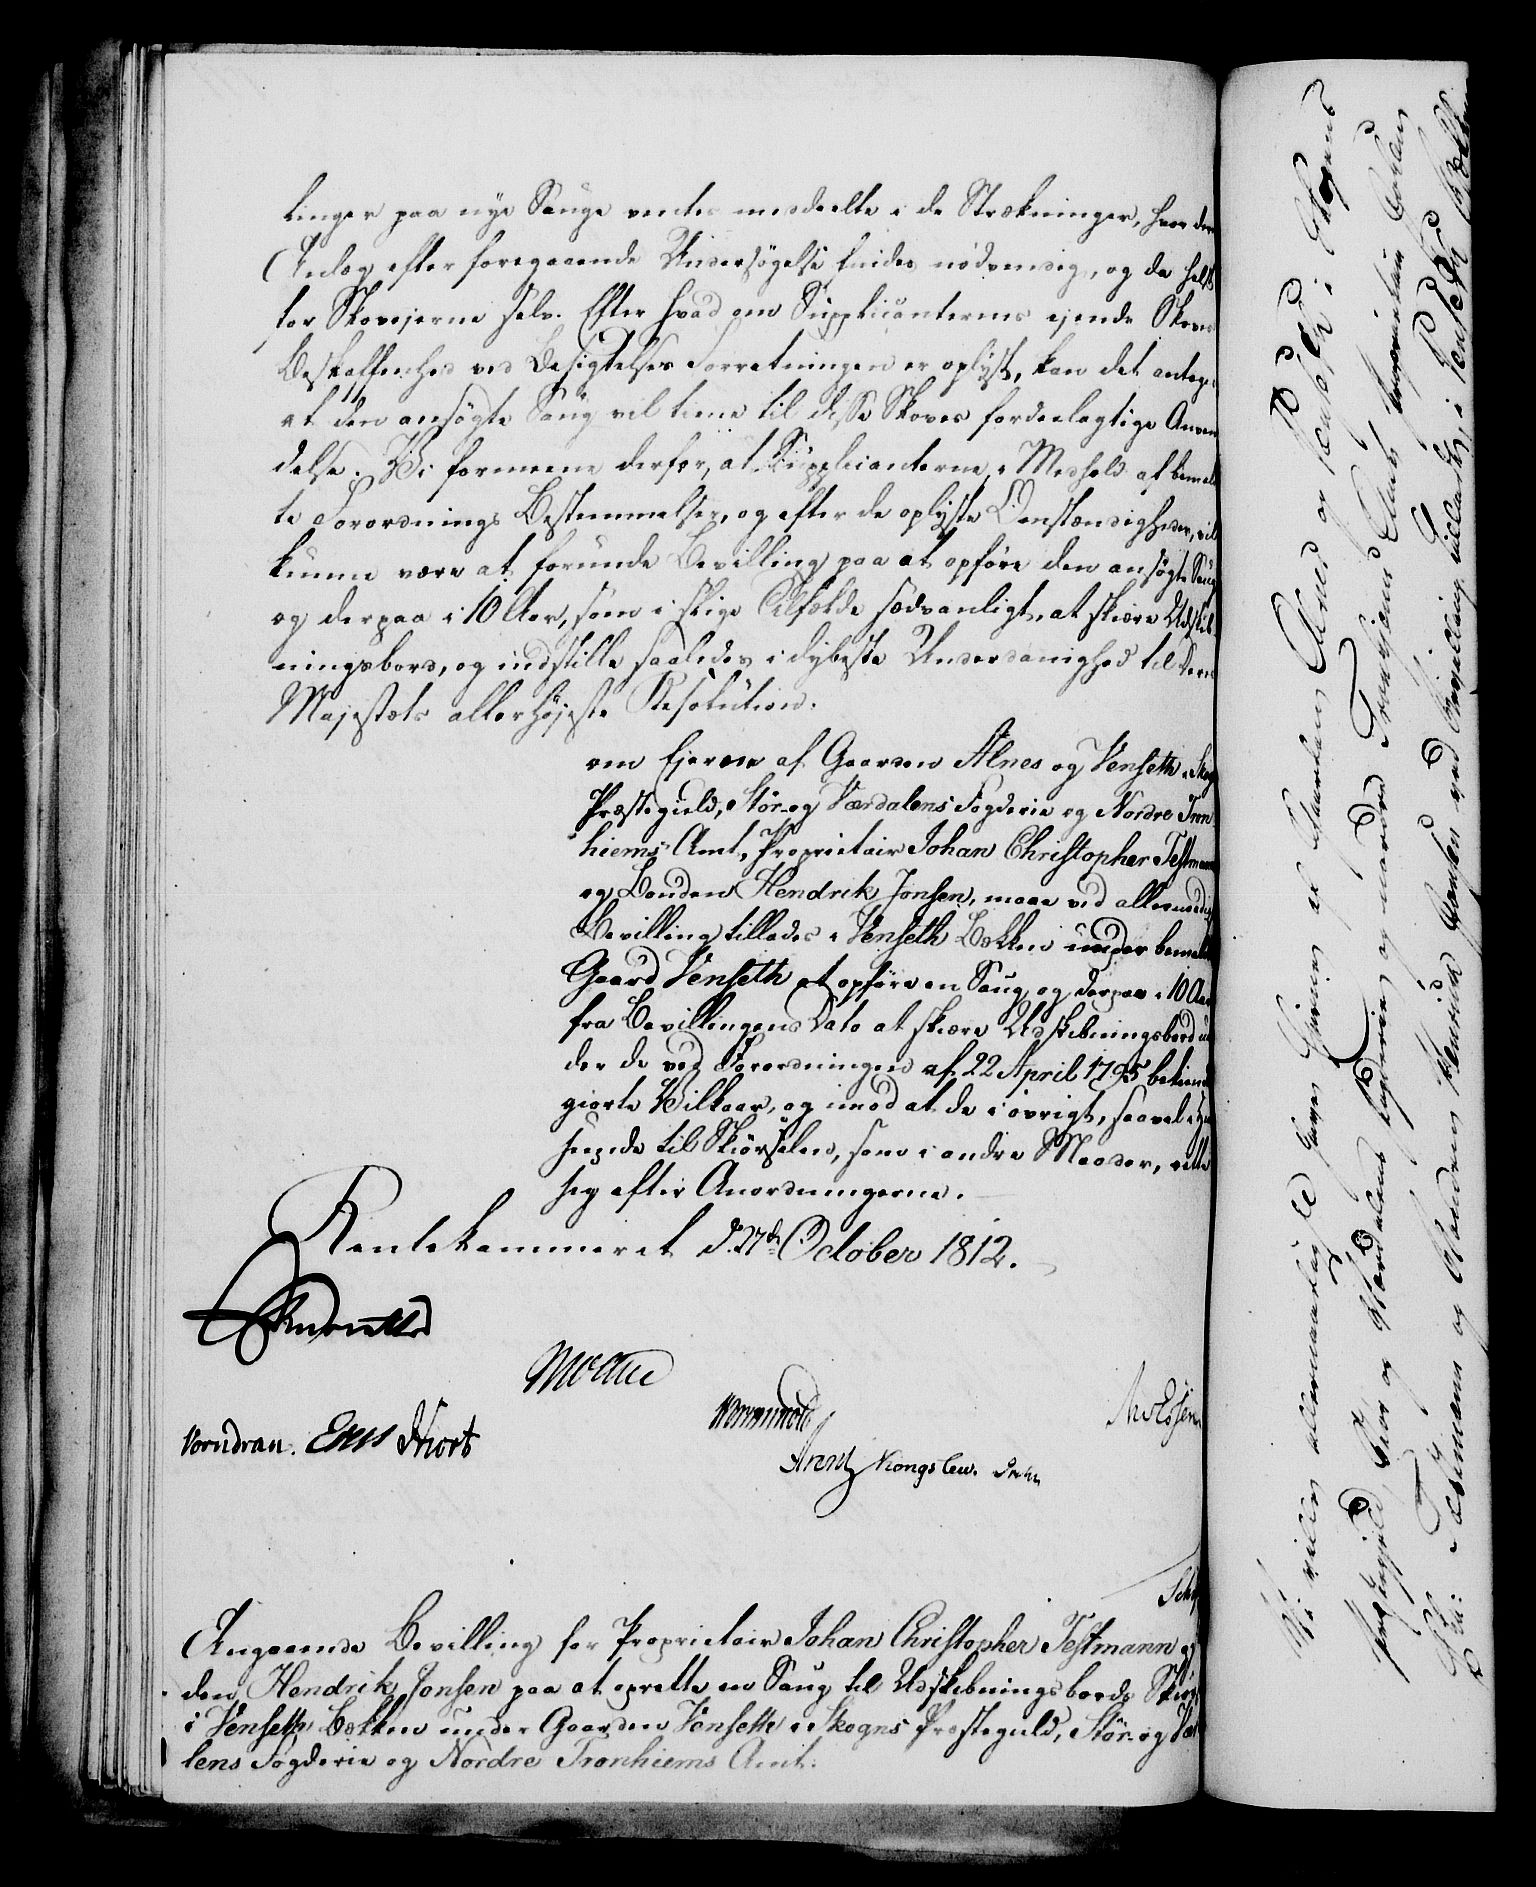 linger paa nye Sauge ventes meddeelte i de Strækninger, hvor dere
Anlæg efter foregaaende Undersøgelse findes nødvendig, og da helst
for Skovejerne selv. Efter hvad om Supplicanternes ejende Skoves
Beskaffenhed ved Besigtelses Forretningen er oplyst, kan det antages
at den ansøgte Saug vil tiene til disse Skoves fordeelagtige Anven
delse. Vi formeene derfor, at Supplicanterne, i Medhold af bemeld
te Forordnings Bestemmelser, og efter de oplyste Omstændigheder, vil
kunne være at forunde Bevilling paa at opføre den ansøgte Saug
og derpaa i 10 Aar, som i slige Tilfælde sædvanligt, at skiere Udskib
ningsbord, og indstille saaledes i dybeste Underdanighed til Deres
Majestæts allerhøjeste Resolution.
om Ejerne af Gaarden Alnes og Venseth i Skogn
Præstegield, Stør- og Værdalens Fogderie og Nordre Tron
hiems Amt, Proprietair Johan Christopher Testmann
og Bonden Hendrik Jonsen, maae ved allernaadigst
Bevilling tillades i Venseth Bækken under bemeldte
Gaard Venseth at opføre en Saug og derpaa i 10 Aar
fra Bevillingens Dato at skiære Udskibningsbord un
der de ved Forordningen af 22 April 1795 bekiendt
giorte Vilkaar, og imod at de i øvrigt, saavel i Hen
seende til Skiørselen, som i andre Maader, rette
sig efter Anordningerne.
Rentekammeret d. 27de October 1812.
Knuth
Moltke
Wormskiold
Vorndran. Hiort
Arentz Kongslew.
Angaaende Bevilling for Proprietair Johan Christopher Testmann og
den Hendrik Jonsen paa at oprette en Saug til Udskibningsbords Skiør
i Venseth Bækken under Gaarden Venseth i Skogns Præstegield, Stør- og Vær
lens Fogderie og Nordre Tronhiems Amt.
Vi ville allernaadigst have Ejerne af Gaarden Alnes og Venseth i Skogns
Præstegield, Stør og Værdalens Fogderie og Nordre Tronhiems Amt, Proprietair Johan
Testmann og Bonden Henrich Jonsen ved Bevilling tilladt, i Venseth